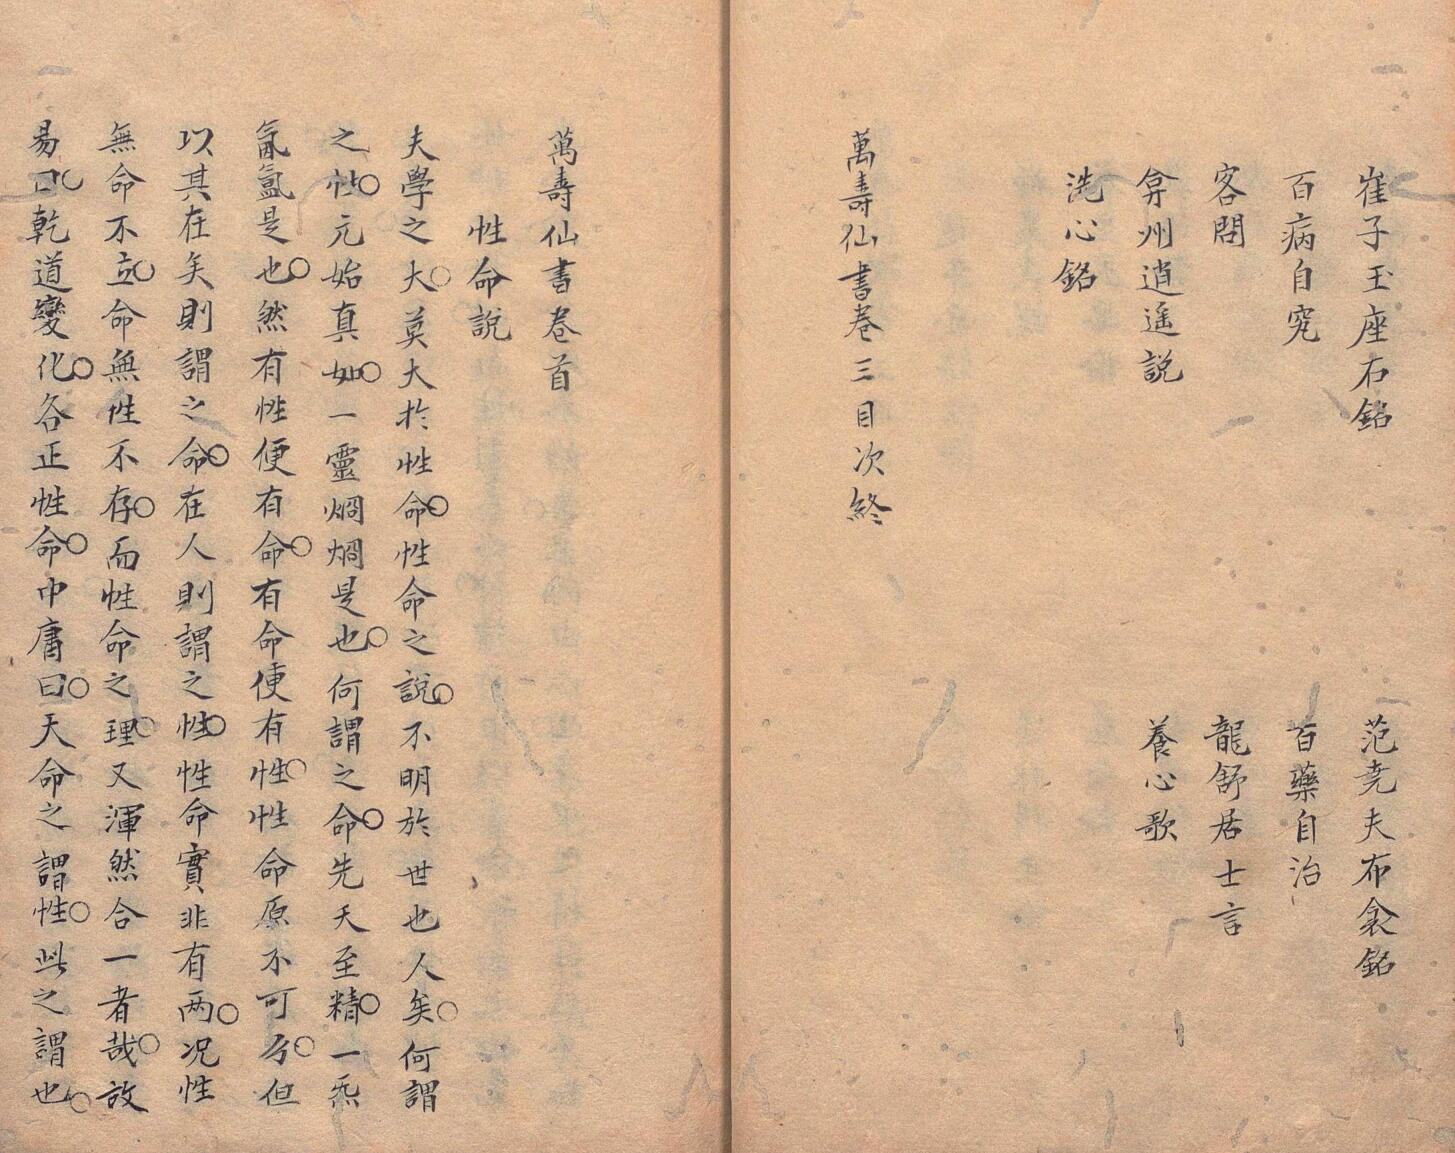 崔子玉座右銘　范尭夫布衾銘
百病自究　百藥自治
客問　龍舒居士言
弇州逍遥説　養心歌
洗心銘
萬壽仙書卷三目次終
萬壽仙書卷首
性命説
夫學之大○莫大於性命○性命之説○不明於世也人矣○何謂
之性○元始真如○一靈烱烱是也○何謂之命○先天至精○一炁
氤氳是也○然有性便有命○有命便有性○性命原不可分○但
以其在矣則謂之命○在人則謂之性○性命實非有两○况性
無命不立○命無性不存○而性命之理○又渾然合一者哉○故
易曰○乾道變化○各正性命○中庸曰○天命之謂性○此之謂也○